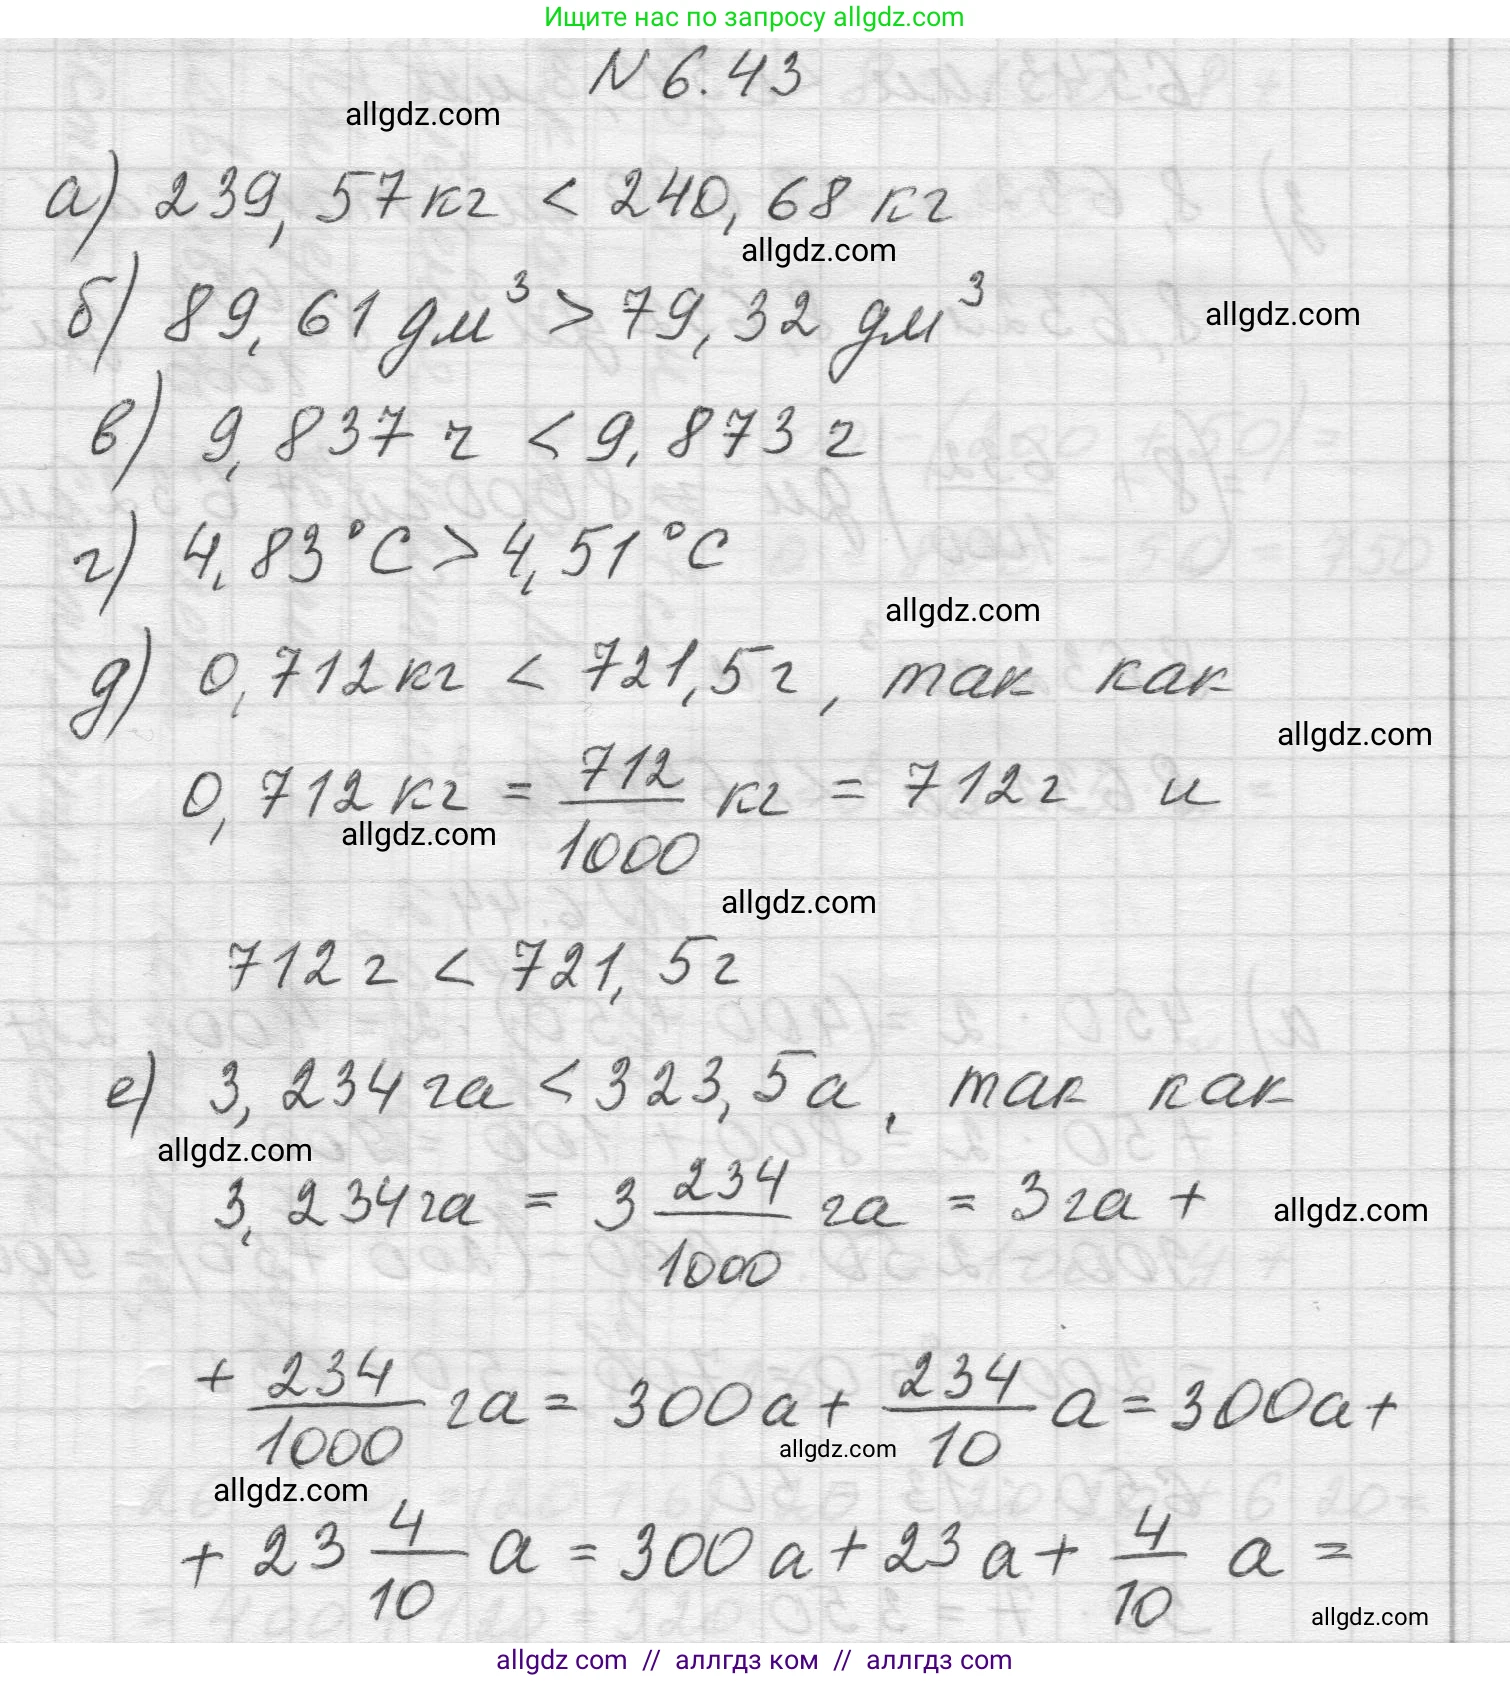 Ищите нас по запросу allgdz.com
N 6.43
allgdz.com
а) 239,57 кг < 240,68 кг
allgdz.com
б) 89,61 дм³ > 79,32 дм³
allgdz.com
в) 9,837 г < 9,873 г
г) 4,83 °C > 4,51 °C
allgdz.com
д) 0,712 кг < 721,5 г, так как
allgdz.com
0,712 кг = 712/1000 кг = 712 г и
allgdz.com
allgdz.com
712 г < 721,5 г
е) 3,234 га < 323,5 а, так как
allgdz.com
3,234 га = 3 234/1000 га = 3 га +
allgdz.com
+ 234/1000 га = 300 а + 234/10 а = 300 а +
allgdz.com
allgdz.com
+ 23 4/10 а = 300 а + 23 а + 4/10 а =
allgdz.com
allgdz com // аллгдз ком // аллгдз com